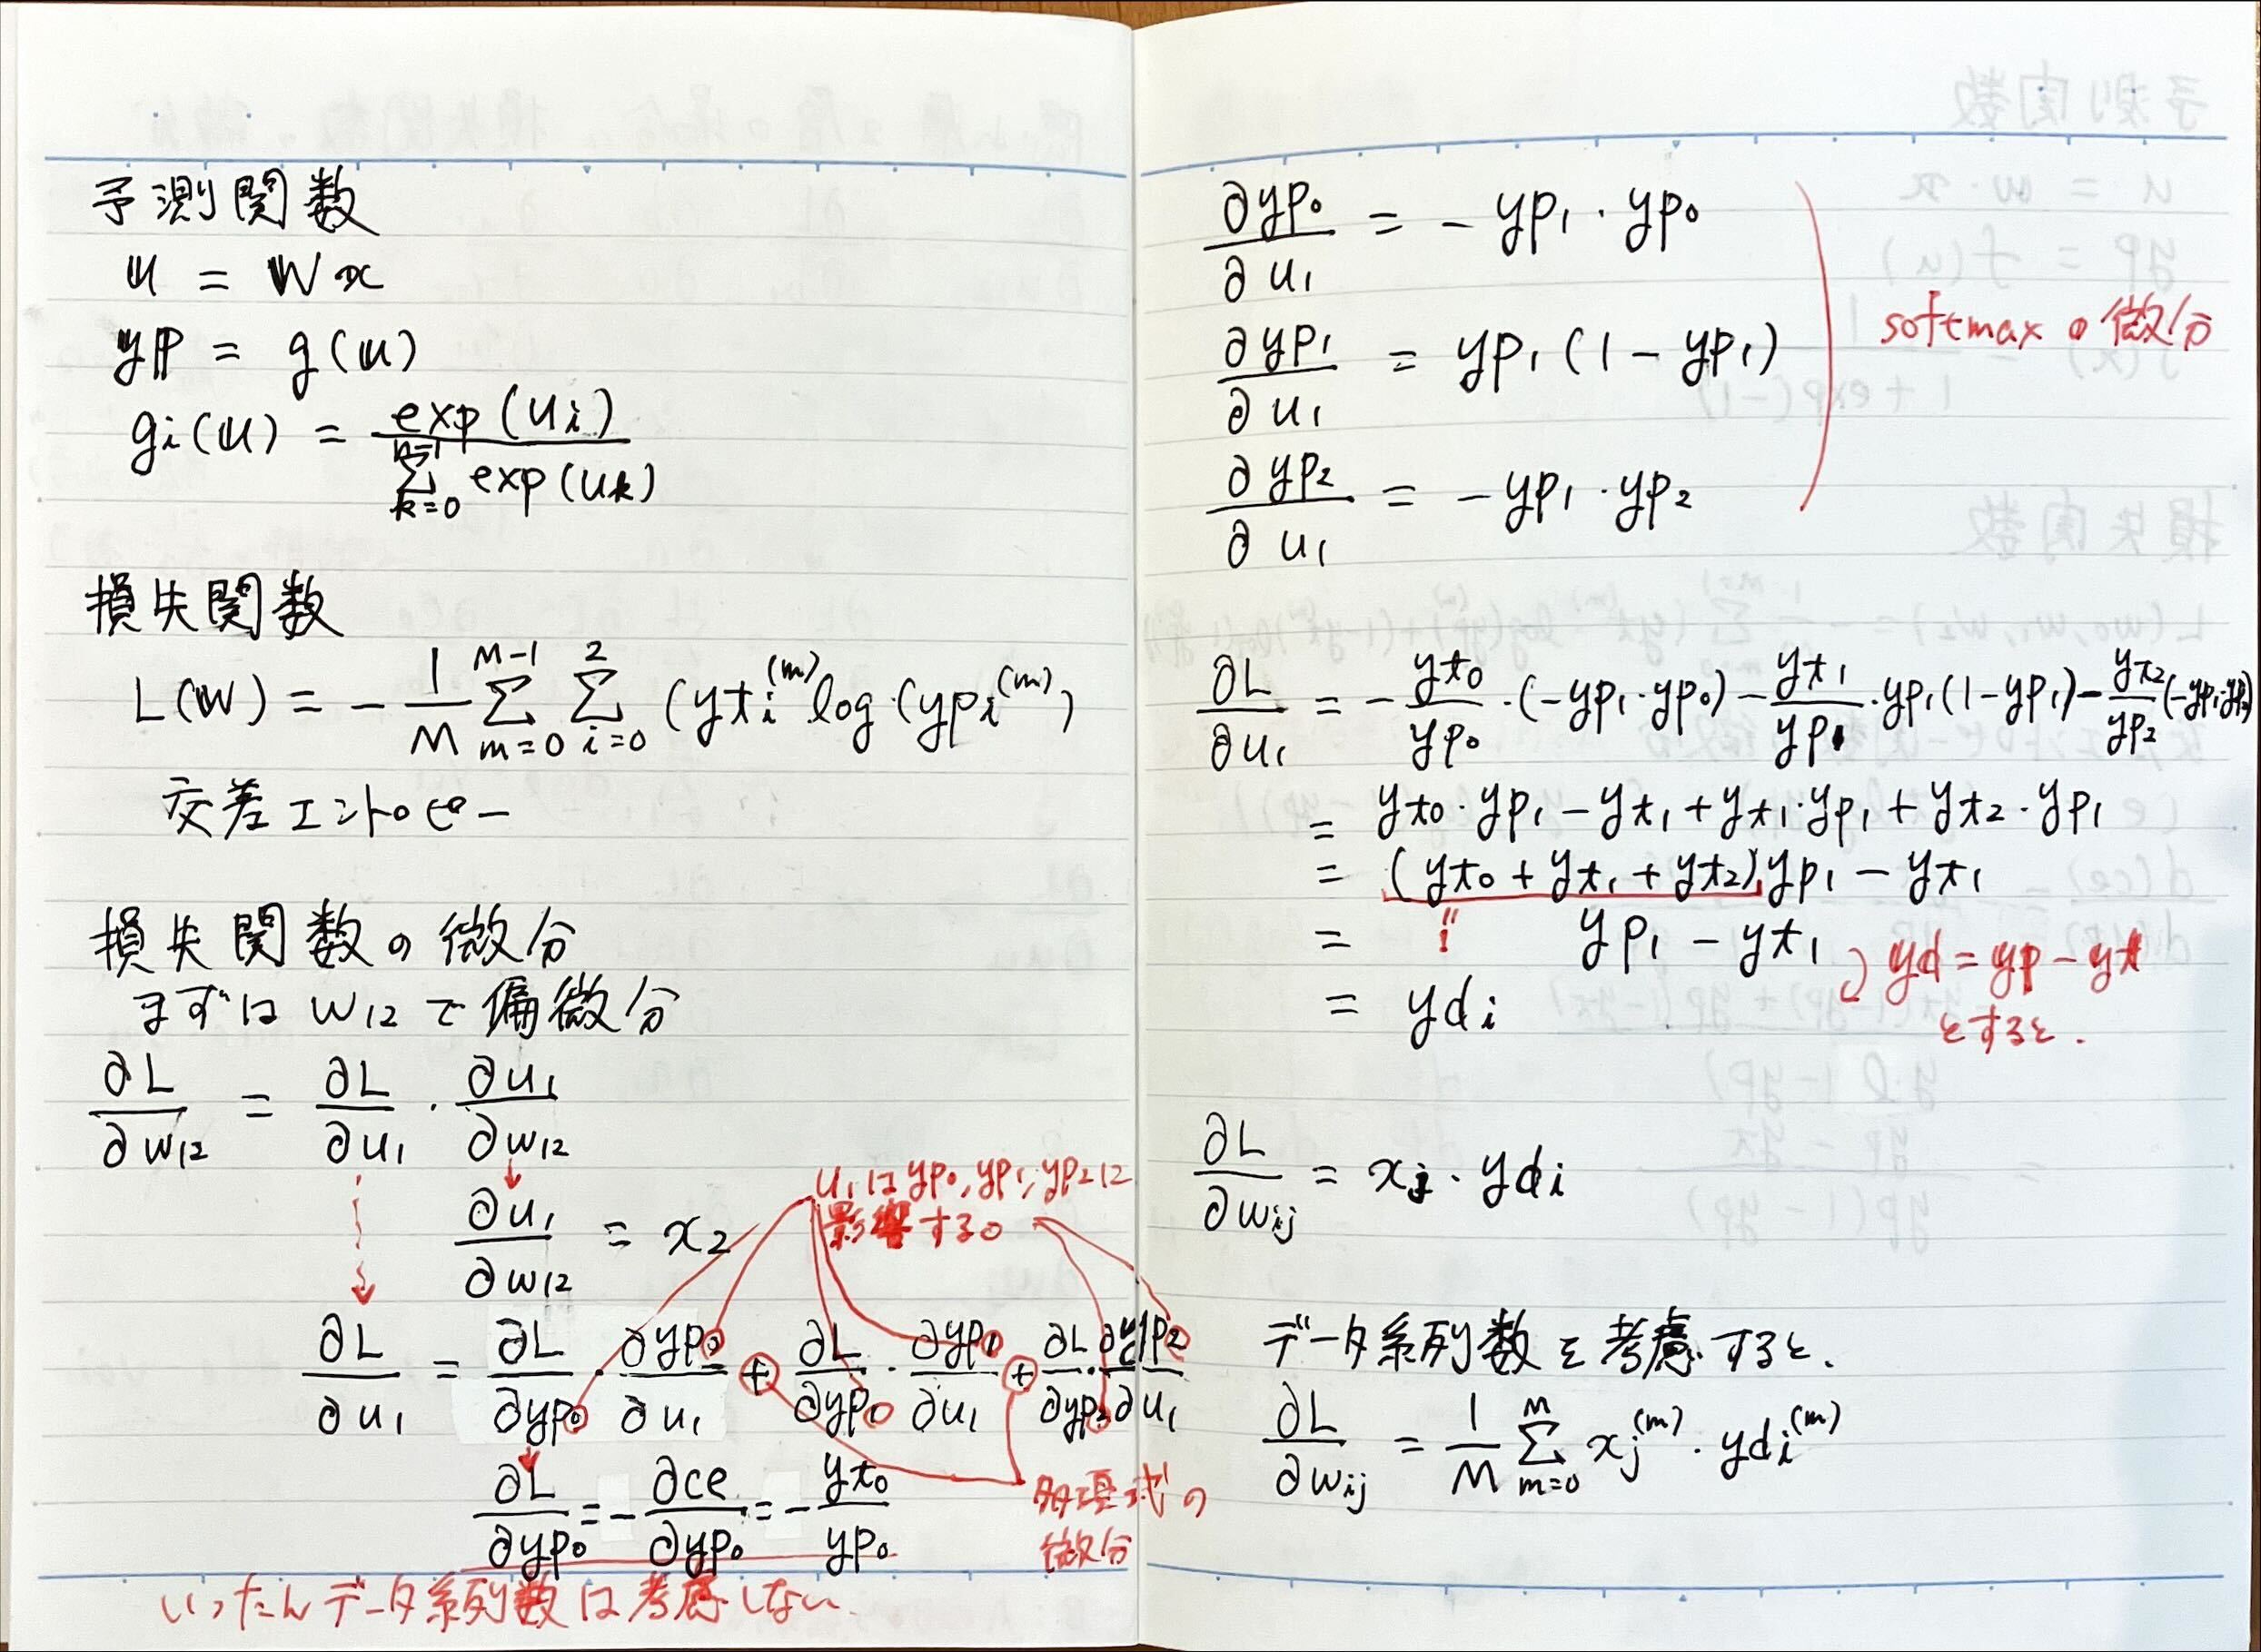 予測関数
u = Wx
yp = g(u)
gi(u) = exp(ui) / Σ_{k=0}^{n-1} exp(uk)
損失関数
L(W) = - 1/M Σ_{m=0}^{M-1} Σ_{i=0}^{2} (yti^(m) log(ypi^(m))
交差エントロピー
損失関数の微分
まずは w12 で偏微分
∂L/∂w12 = ∂L/∂u1 · ∂u1/∂w12
u1は yp0, yp1, yp2に
影響する。
∂u1/∂w12 = x2
∂L/∂u1 = ∂L/∂yp0 · ∂yp0/∂u1 + ∂L/∂yp1 · ∂yp1/∂u1 + ∂L/∂yp2 · ∂yp2/∂u1
∂L/∂yp0 = - ∂ce/∂yp0 = - yt0/yp0
多項式の
微分
いったんデータ系列数は考慮しない
∂yp0/∂u1 = - yp1 · yp0
∂yp1/∂u1 = yp1 (1 - yp1)
softmaxの微分
∂yp2/∂u1 = - yp1 · yp2
∂L/∂u1 = - yt0/yp0 · (-yp1 · yp0) - yt1/yp1 · yp1 (1 - yp1) - yt2/yp2 (-yp1 · yp2)
= yt0 · yp1 - yt1 + yt1 · yp1 + yt2 · yp1
= (yt0 + yt1 + yt2) yp1 - yt1
= yp1 - yt1
1
yd = yp - yt
とすると.
= ydi
∂L/∂wij = xj · ydi
データ系列数を考慮すると、
∂L/∂wij = 1/M Σ_{m=0}^{M} xj^(m) · ydi^(m)